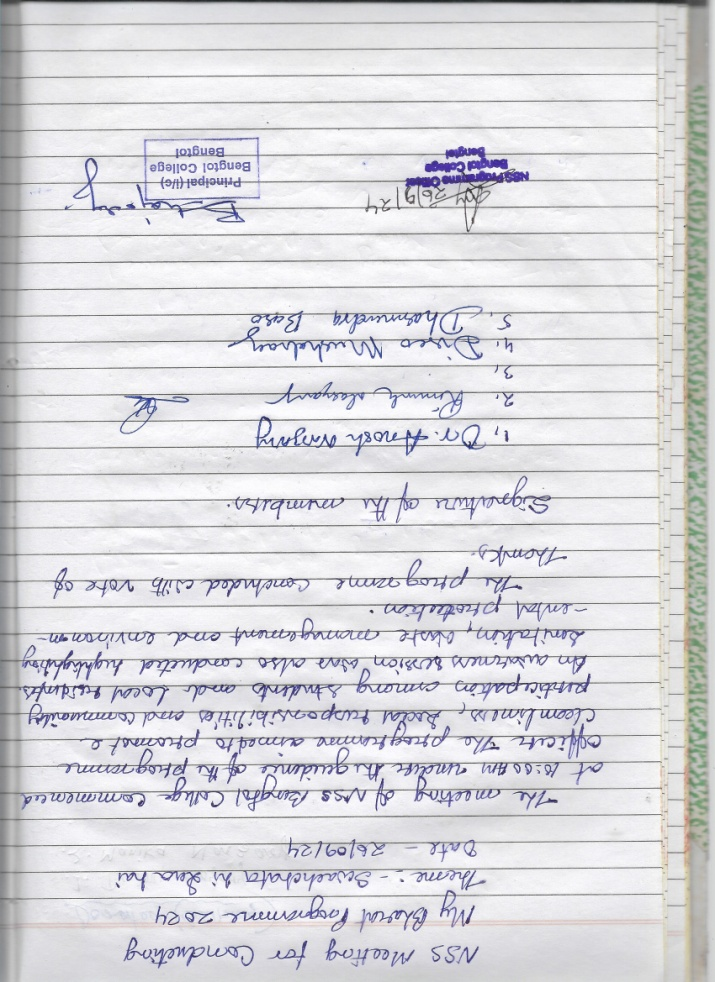 NSS Meeting for Conducting
My Bharat Programme 2024
Theme :- Swachchata hi Seva hai
Date - 26/09/24
The meeting of NSS Bengtol College commenced
at 10:00 AM under the guidence of the programme
officer. The programme aimed to promote
cleanliness, social responsibilities and community
participation among students and local residents.
An awarness session was also conducted highlighting
sanitation, waste management and environm-
-ental protection.
The programme concluded with vote of
Thanks.
Signature of the members.
1, Dr. Anosh
2.
3,
4. Dires
5. Dharmendra Basu
26/9/24
NSS Programme Officer
Bengtol College
Bengtol
Principal (I/c)
Bengtol College
Bengtol